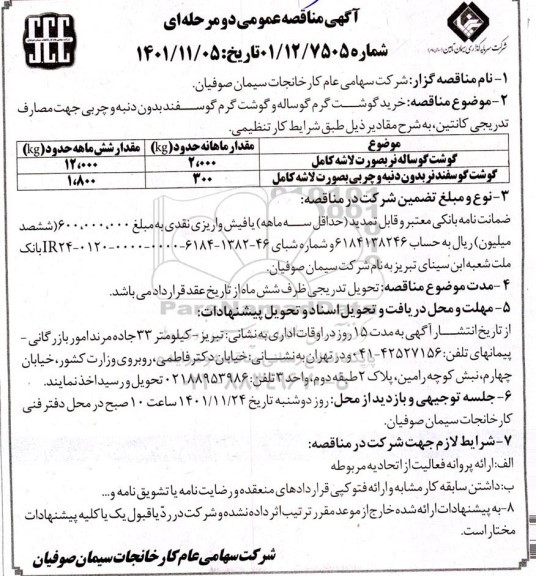 آگهی مناقصه عمومی دو مرحله‌ای
شماره ۰۱/۱۲/۷۵۰۵ تاریخ: ۱۴۰۱/۱۱/۰۵
SCC
۱- نام مناقصه گزار: شرکت سهامی عام کارخانجات سیمان صوفیان.
۲- موضوع مناقصه: خرید گوشت گرم گوساله و گوشت گرم گوسفند بدون دنبه و چربی جهت مصارف
تدریجی کانتین، به شرح مقادیر ذیل طبق شرایط کار تنظیمی.
موضوع مقدار ماهانه حدود (kg) مقدار شش ماهه حدود (kg)
گوشت گوساله نر بصورت لاشه کامل ۲,۰۰۰ ۱۲,۰۰۰
گوشت گوسفند نر بدون دنبه و چربی بصورت لاشه کامل ۳۰۰ ۱,۸۰۰
۳- نوع و مبلغ تضمین شرکت در مناقصه:
ضمانت نامه بانکی معتبر و قابل تمدید (حداقل سه ماهه) یا فیش واریزی نقدی به مبلغ ۶۰۰,۰۰۰,۰۰۰ (ششصد
میلیون) ریال به حساب ۶۱۸۴۱۳۸۲۴۶ و شماره شبای IR۲۴-۰۱۲۰-۰۰۰۰-۰۰۰۰-۶۱۸۴-۱۳۸۲-۴۶ بانک
ملت شعبه ابن سینای تبریز به نام شرکت سیمان صوفیان.
۴- مدت موضوع مناقصه: تحویل تدریجی ظرف شش ماه از تاریخ عقد قرارداد می باشد.
۵- مهلت و محل دریافت و تحویل اسناد و تحویل پیشنهادات:
از تاریخ انتشار آگهی به مدت ۱۵ روز در اوقات اداری به نشانی: تبریز - کیلومتر ۳۳ جاده مرند امور بازرگانی -
پیمانهای تلفن: ۴۲۵۲۷۱۵۶-۰۴۱ و در تهران به نشانی: خیابان دکتر فاطمی، روبروی وزارت کشور، خیابان
چهارم، نبش کوچه رامین، پلاک ۲ طبقه دوم، واحد ۳ تلفن: ۰۲۱۸۸۹۵۳۹۸۶ تحویل و رسید اخذ نمایند.
۶- جلسه توجیهی و بازدید از محل: روز دوشنبه تاریخ ۱۴۰۱/۱۱/۲۴ ساعت ۱۰ صبح در محل دفتر فنی
کارخانجات سیمان صوفیان.
۷- شرایط لازم جهت شرکت در مناقصه:
الف: ارائه پروانه فعالیت از اتحادیه مربوطه
ب: داشتن سابقه کار مشابه و ارائه فتوکپی قراردادهای منعقده و رضایت نامه یا تشویق نامه و...
۸- به پیشنهادات ارائه شده خارج از موعد مقرر ترتیب اثر داده نشده و شرکت در رد یا قبول یک یا کلیه پیشنهادات
مختار است.
شرکت سهامی عام کارخانجات سیمان صوفیان